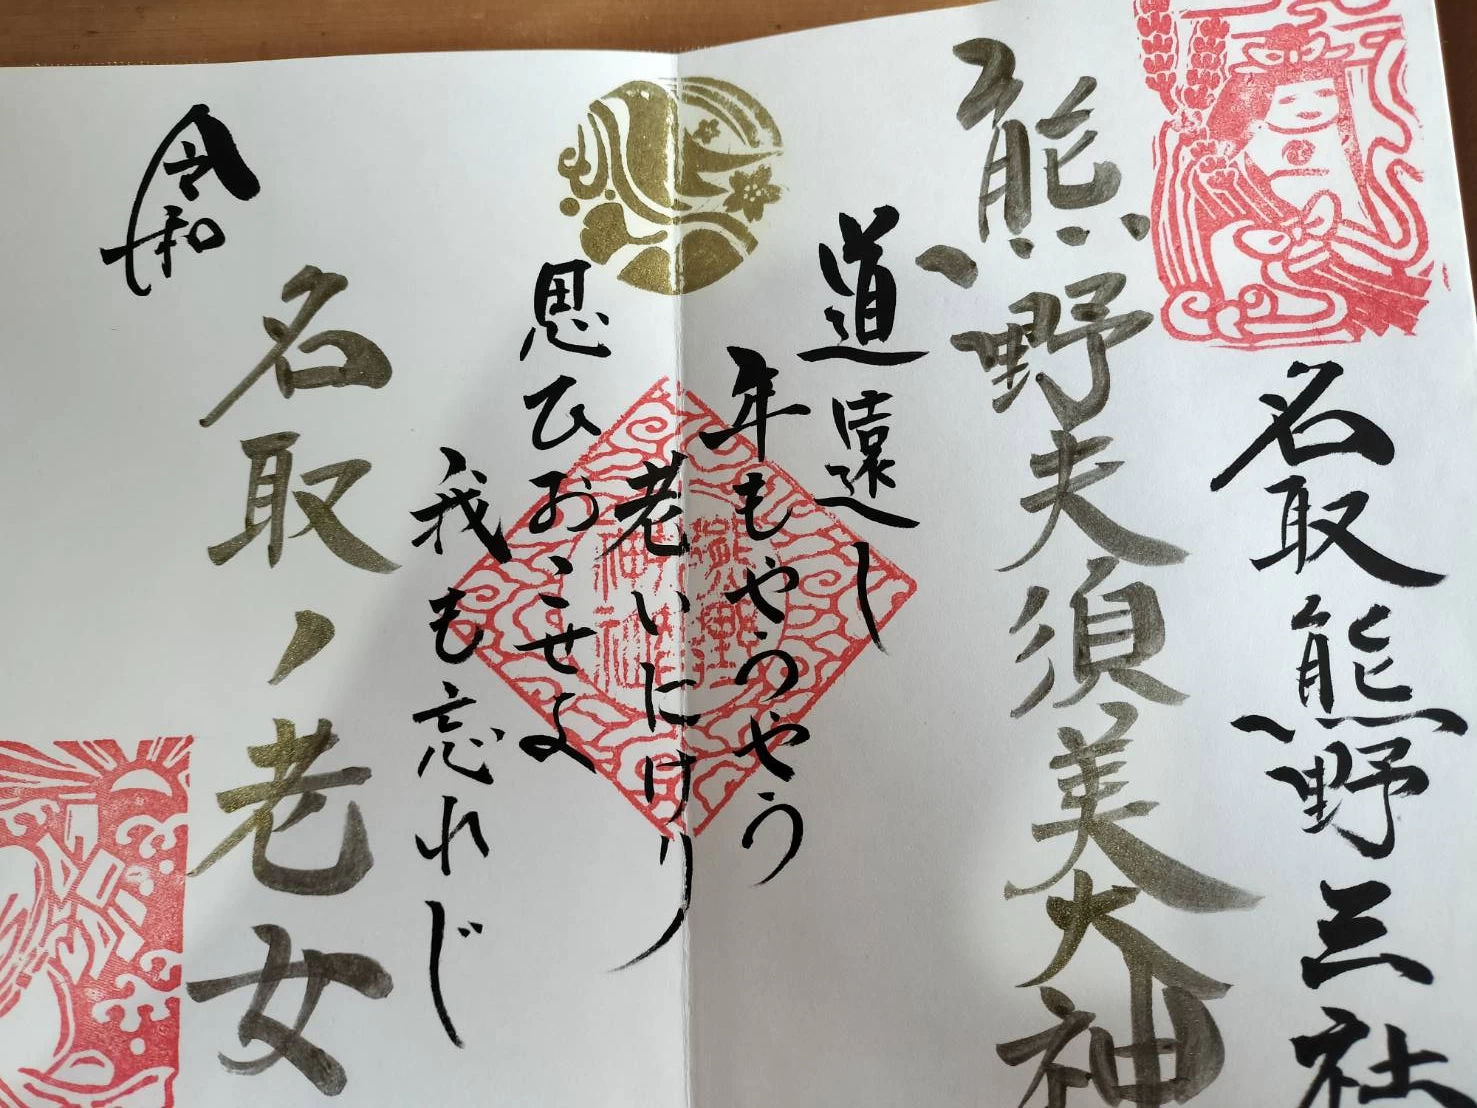 名取熊野三社
熊野夫須美大神
道遠し
年もやうやう
老いにけり
思ひおこせよ
我も忘れじ
名取ノ老女
令和